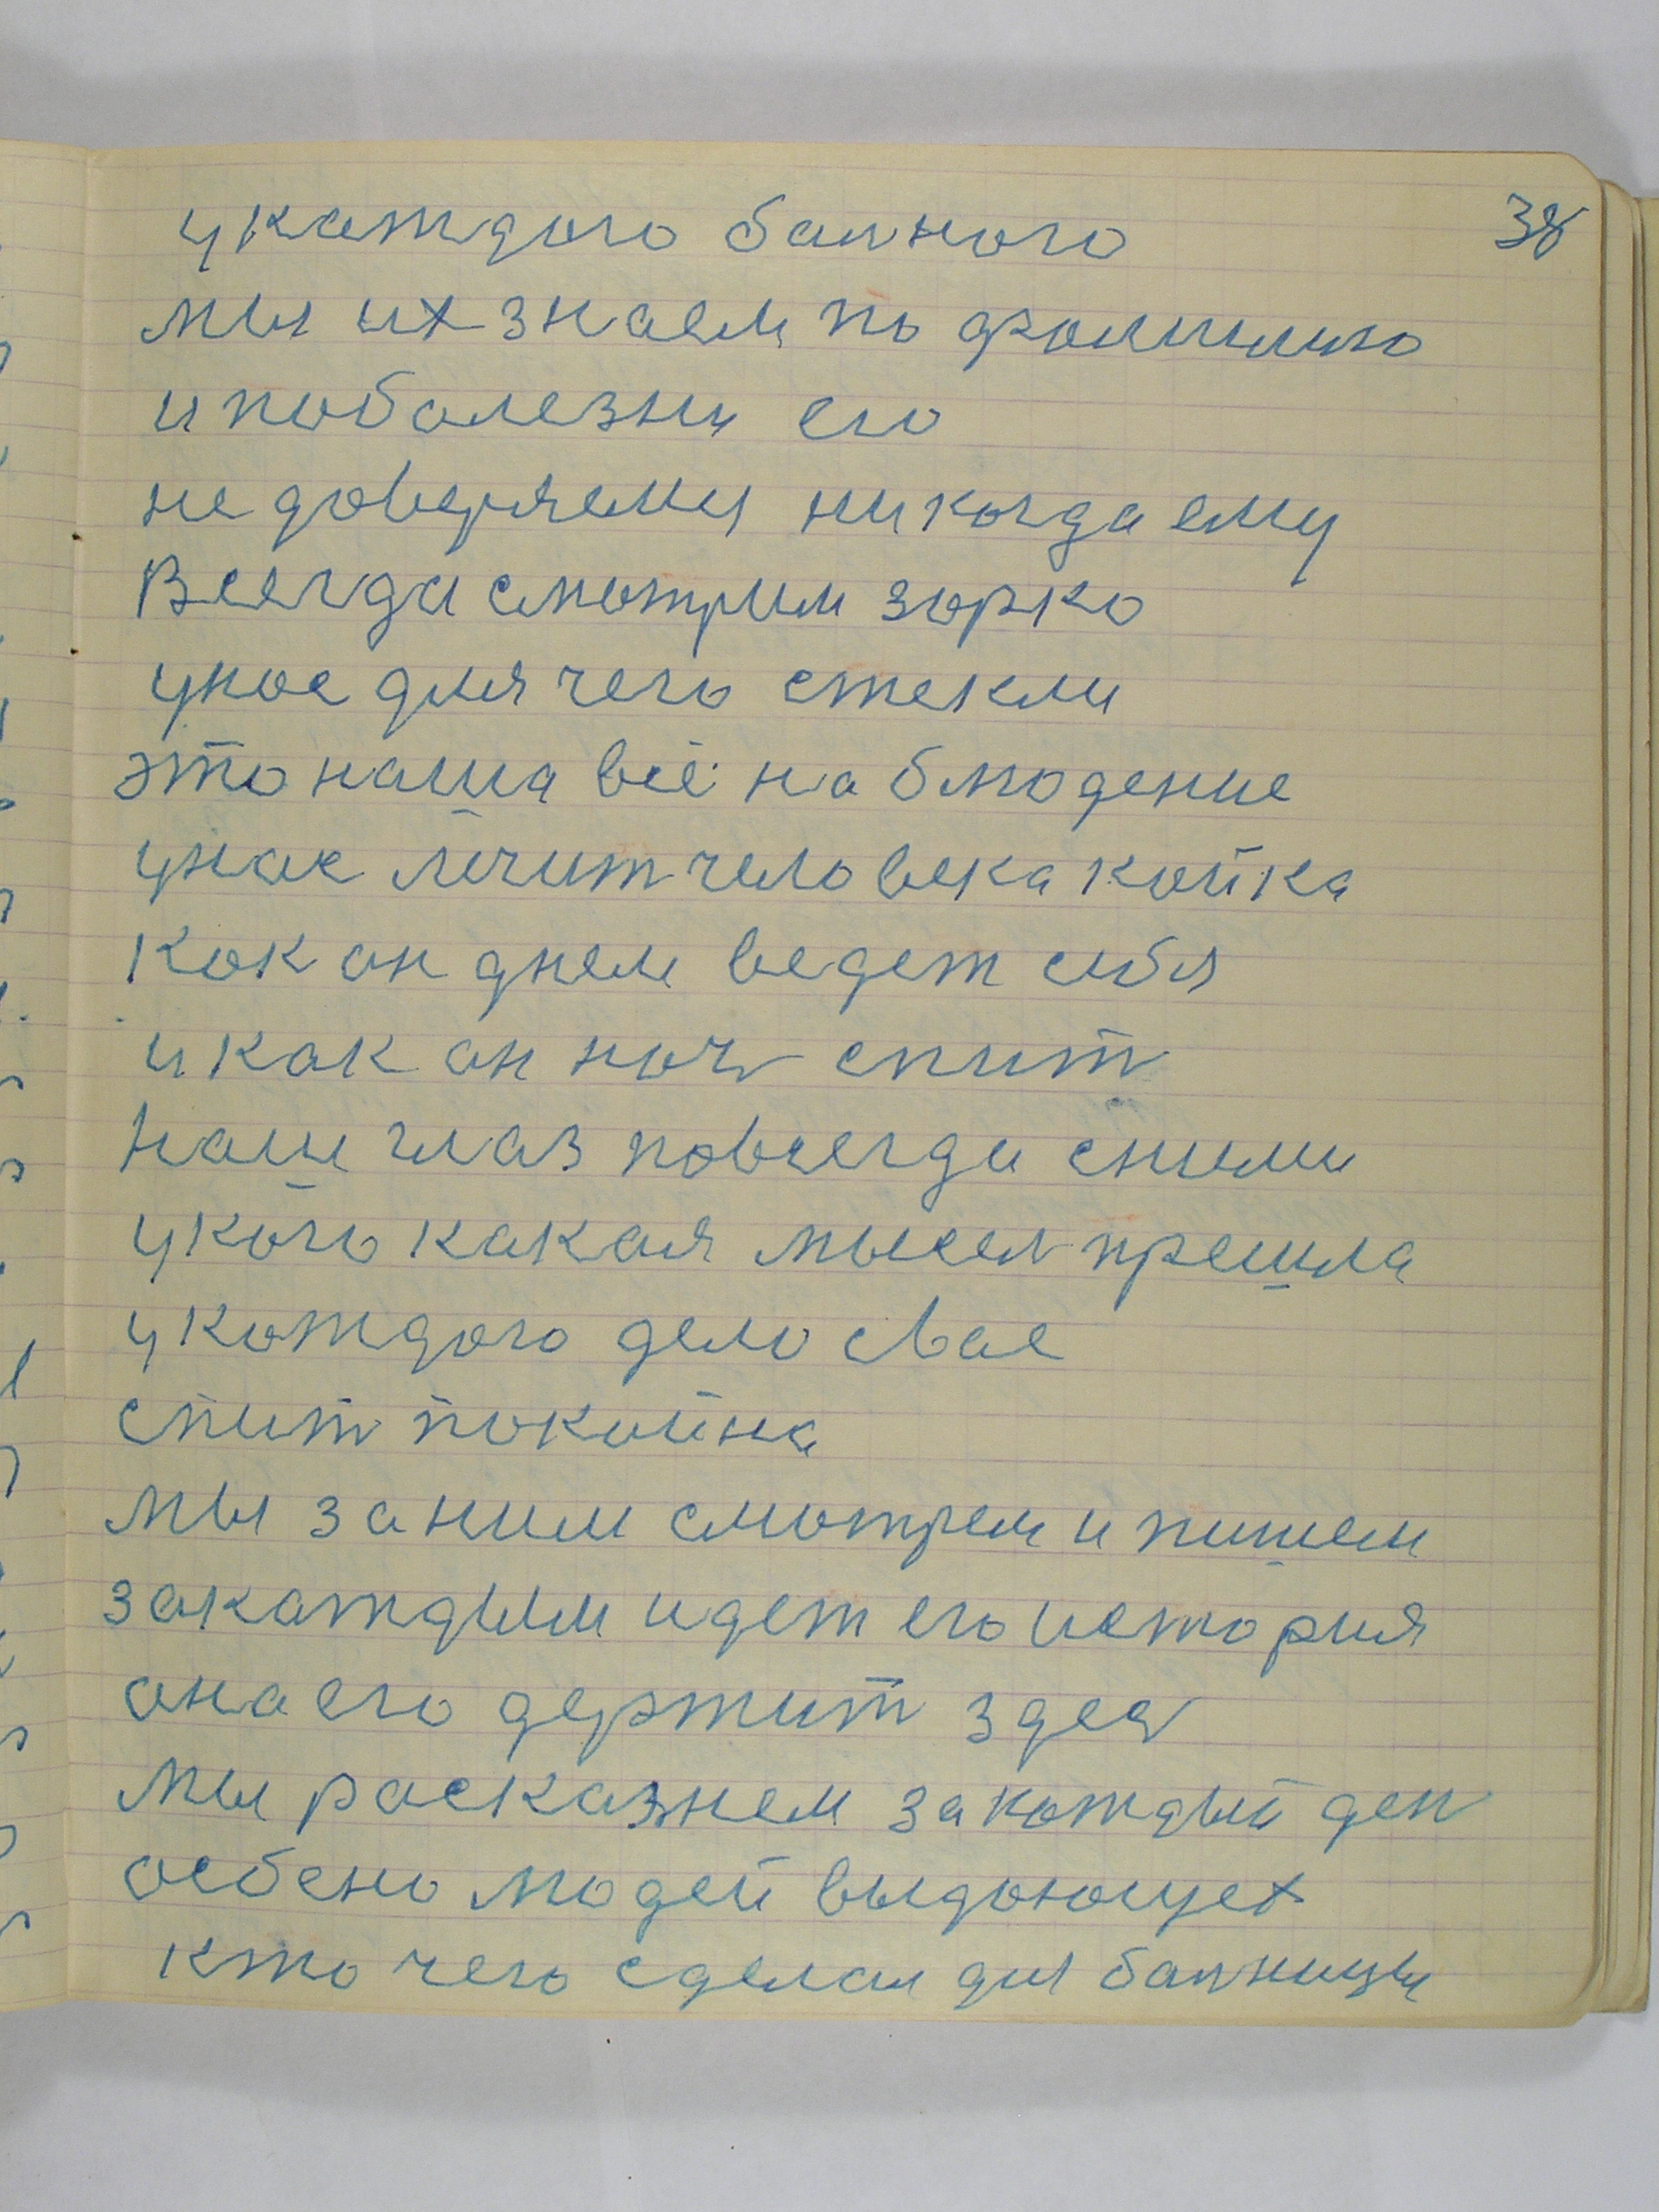 38
укаждого балного
мы их знаем по фомилию
и поболезни его
не доверяемы никогда ему
Всегда смотрим зорко
унас для чего стекли
это наша всё на блюдение
унас лечит человека койка
Как он днем ведет себя
и как он ноч спит
наш глаз повсегда сними
укого какая мысел прешла
укождого дело свае
спит покойна
мы за ним смотрем и пишем
закаждым идет его история
она его держит здес
мы расказнем за кождый ден
особено людей выдоющех
кто чего сделал для балницы